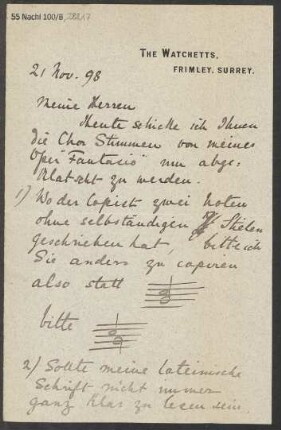 55 Nachl 100/B,
THE WATCHETTS,
FRIMLEY, SURREY.
21 Nov. 98
Meine Herren
Heute schicke ich Ihnen
die Chor Stimmen von meiner
Oper "Fantasio" um abge-
klatscht zu werden.
1) Wo der Copist zwei Noten
ohne selbständigen Stielen
geschrieben hat, bitte ich
Sie anders zu copiren
also statt
bitte
2) Sollte meine lateinische
Schrift nicht immer
ganz klar zu lesen sein